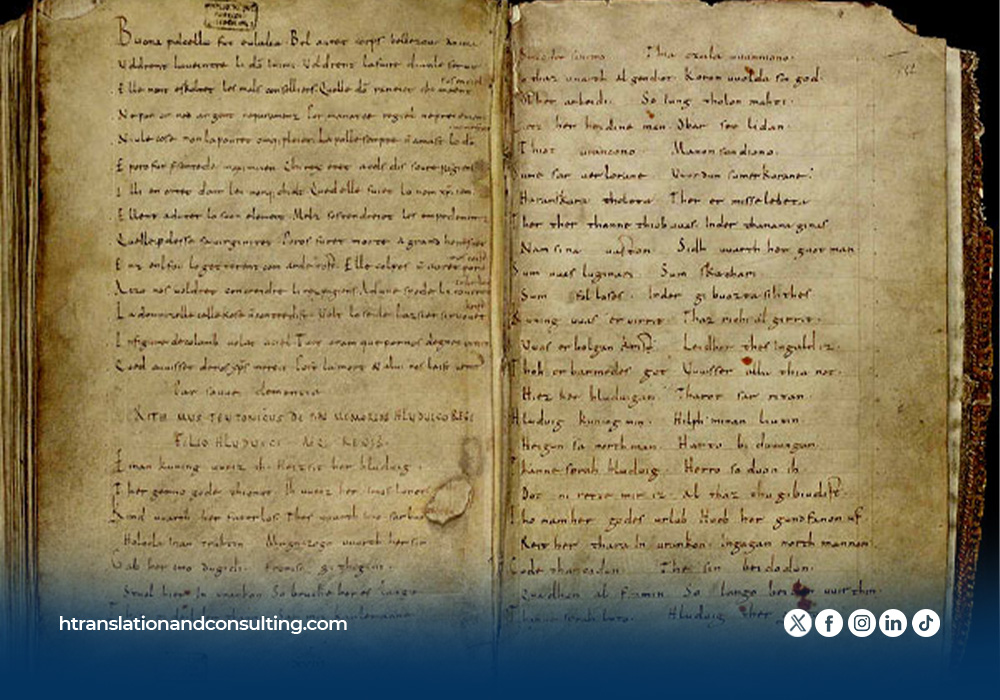 Buona pulcella fut eulalia. Bel auret corps bellezour anima
Voldrent la ueintre li dō inimi. Voldrent la faire diaule seruir
Elle nont eskoltet les mals conselliers. Quelle dō raneiet chi maent
Ne por or ned argent ne paramenz. Por manatce regiel ne preiement
Niule cose non la pouret omq; pleier. La polle sempre
E por o fut p̄sentede maximiien. Chi rex eret a cels dis soure pagiens
Il li enortet dont lei nonq; chielt. Qued elle fuiet lo nom
Ellent adunet lo suon element. Melz sostendreiet les empedementz
Quelle perdesse sa uirginitet. Poros furet morte a grand honestet
Enz enl fou lo getterent com arde tost. Elle colpes
A czo nos voldret concreidre li rex pagiens. Ad une spede li
La domnizelle celle kose contredist. Volt lo seule lazsier
In figure de colomb uolat a ciel. Tuit oram que por nos degnet
Qued auuisset de nos mercit. Post la mort & a lui nos laist
Par souue clementia
RITHMUS TEUTONICUS DE PIAE MEMORIAE HLUDUICO REGE
FILIO HLUDUICI AEQ. REGIS.
Einan kuning uueiz ih. Heizsit her hluduig.
Ther gerno gode thionot. Ih uueiz her imos lonot.
Kind uuarth her faterlos. Thes uuarth imo sar
Holoda inan truhtin. Magaczogo uuarth her sin
Gab her imo dugidi. Fronisc githigini.
Stuol hier in urankon. So bruche her es lango
Thia czala uuunniono.
So thaz uuarth al gendiot. Koron uuolda sin god.
Ob her arbeidi. So iung tholon mahti.
Lietz her heidine man. Obar seo lidan.
Thiot urancono. Manon sundiono.
Sume sar uerlorane. Uuurdun sum erkorane.
Haranskara tholota. Ther er misselebeta
Ther ther thanne thiob uuas. Inder thanana ginas
Nam sina uaston. Sidh uuarth her guot man
Sum uuas luginari. Sum skachari.
Sum fol loses. Inder gibuozta sih thes
Kuning uuas eruirrit. Thaz richi al girrit.
Uuas erbolgan krist. Leidhor thes ingald iz.
Thoh erbarmedes got. Uuisser alla thia not.
Hiez her hluduigan. Tharot sar ritan.
Hluduig kuning min. Hilph minan liutin.
Heigun sa northman. Harto biduuungan.
Thanne sprah hluduig. Herro so duon ih
Dot ni rette mir iz. Al thaz thu gibiudist.
Tho nam her godes urlub. Huob her gundfanon uf.
Reit her thara in urankon. Ingagan northmannon.
Gode thancodun. The sin beidodun.
Quadhun al fro min. So lango beidon uuir thin.
Thanne sprah luto. Hluduig ther
htranslationandconsulting.com